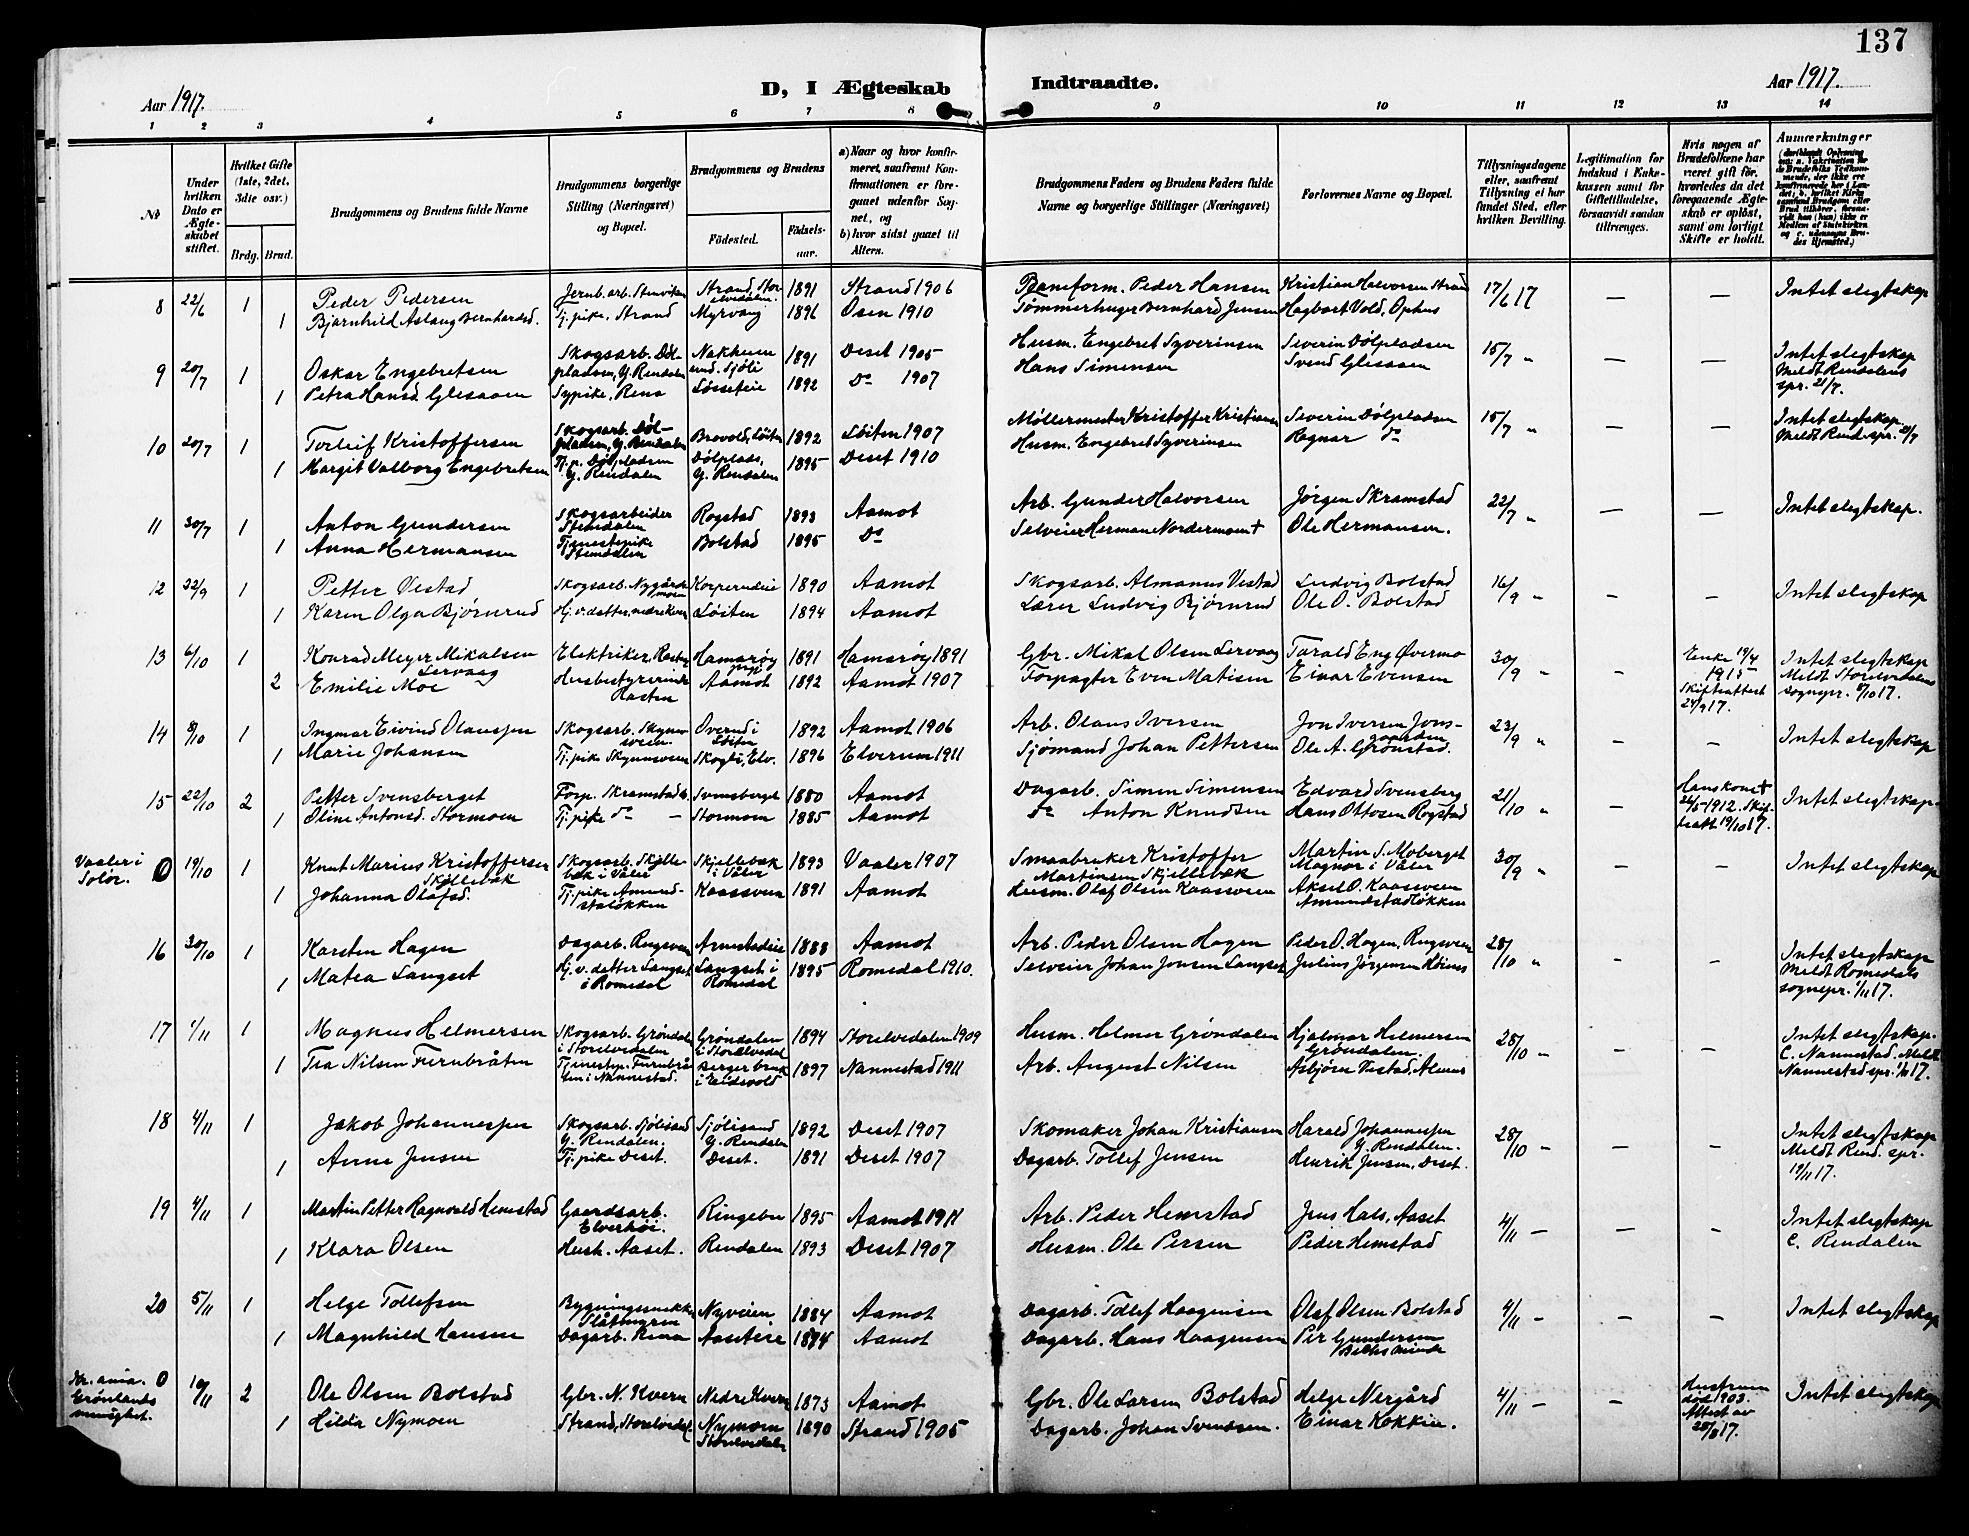 137
D, I Ægteskab Indtraadte.
Aar 1917.
Aar 1917.
1 2 3 4 5 6 7 8 9 10 11 12 13 14
No
Under hvilken Dato er Ægteskabet stiftet.
Hvilket Gifte (1ste, 2det, 3die osv.)
Brdg. Brud.
Brudgommens og Brudens fulde Navne
Brudgommens borgerlige Stilling (Næringsvei) og Bopæl.
Brudgommens og Brudens
Fødested.
Fødselsaar.
a) Naar og hvor konfirmeret, saafremt Konfirmationen er foregaaet udenfor Sognet, og
b) hvor sidst gaaet til Alters.
Brudgommens Faders og Brudens Faders fulde Navne og borgerlige Stillinger (Næringsvei)
Forlovernes Navne og Bopæl.
Tillysningsdagene eller, saafremt Tillysning ei har fundet Sted, efter hvilken Bevilling.
Legitimation for Indskud i Enkekassen samt for Giftetilladelse, forsaavidt saadan tiltrænges.
Hvis nogen af Brudefolkene har været gift før, hvorledes da det foregaaende Ægteskab er opløst, samt om lovligt Skifte er holdt.
Anmærkninger
8 22/6 1 Peder Pedersen Jernb.arb. Stenviken Strand, Storelvedalen 1891 Strand 1906 Baneform. Peder Hansen Kristian Halvorsen Strand 17/6 17 — — Intet slegtskap
1 Bjarnhild Aslaug Bernhardsd. Tj.pike, Strand Myrvang 1896 Osen 1910 Tømmerhuger Bernhard Jensen Hagbart Vold, Ophus
9 20/7 1 Oskar Engebretsen Skogsarb. Dølpladsen, Y. Rendalen 1891 Deset 1905 Husm. Engebret Syverinsen Severin Dølpladsen 15/7 " — — Intet slegtskap Meldt Rendalens spr. 21/7.
1 Petra Hansd. Glesaaen Sypike, Rena Løsseteie 1892 Do 1907 Hans Simensen Svend Glesaaen
10 20/7 1 Torleif Kristoffersen Skogsarb. Dølpladsen, Y. Rendalen Brovold, Løiten 1892 Løiten 1907 Møllermester Kristoffer Kristiansen Severin Dølpladsen 15/7 " — — Intet slegtskap. Meldt Rend. spr. 21/7
1 Margit Valborg Engebretsen Tj.p. Dølpladsen Y. Rendalen Dølplads, Y. Rendalen 1895 Deset 1910 Husm. Engebret Syverinsen Ragnar do
11 30/7 1 Anton Gundersen Skogsarbeider Stendalen Rogstad 1893 Aamot Arb. Gunder Halvorsen Jørgen Skramstad 22/7 " — — Intet slegtskap.
1 Anna Hermansen Tjenestepike Stendalen Bolstad 1895 Do Selveier Herman Nordermoen + Ole Hermansen.
12 22/9 1 Petter Vestad Skogsarb. Nygårdsmoen 1890 Aamot Skogsarb. Almanus Vestad Ludvig Bolstad 16/9 " — — Intet slegtskap
1 Karen Olga Bjørnrud Hj.v. detter. Løiten 1894 Aamot Lærer Ludvig Bjørnrud Ole O. Bolstad
13 6/10 1 Konrad Meyer Mikalsen Lervaag Elektriker, Hamarøy 1891 Hamarøy 1891 Gbr. Mikal Olsen Lervaag Tarald Eng Øvermo 30/9 " — Enke 19/4 1915 Skifteattest 24/9 17. Intet slegtskap Meldt Storelvedalens sognepr. 8/10 17.
2 Emilie Moe Husbestyrerinde Aamot 1892 Aamot 1907 Forpagter Even Matisen Einar Evensen
14 8/10 1 Ingmar Eivind Olaussen Skogsarb. Skynnsveen Overud i Løiten 1892 Aamot 1906 Arb. Olaus Iversen Jon Iversen Jonsgaarden 23/9 " — — Intet slegtskap
1 Marie Johansen Tj.pike Skynnsveen Skogli, Elv. 1896 Elverum 1911 Sjømand Johan Pettersen Ole A. Grønstad.
15 22/10 2 Petter Svensberget Forp. Skramstad Svensberget 1880 Aamot Dagarb. Simen Simensen Edvard Svensberg 21/10 " — Hans kone + 26/5 1912. Skifteatt 19/10 17. Intet slegtskap.
1 Oline Antonsd. Stormoen Tj.pike do — Stormoen 1885 Aamot do Anton Knudsen Hans Ottosen Rogstad
Vaaler i Solør. 0 19/10 1 Knut Marius Kristoffersen Skjellebæk Skogsarb. Skjellebæk i Våler Skjellebæk i Våler 1893 Vaaler 1907 Smaabruker Kristoffer Martinsen Skjellebæk Martin S. Moberget Magnor i Våler 30/9 — — Intet slegtskap
1 Johanna Olafsd. Tj.pike Amundstaløkken Kaasveen 1891 Aamot Husm. Olaf Olsen Kaasveen Aksel O. Kaasveen Amundstadløkken
16 30/10 1 Karsten Hagen Dagarb. Rugsveen 1888 Aamot Arb. Peder Olsen Hagen Peder O. Hagen, Rugsveen 28/10 " — — Intet slegtskap Meldt Romedals sognepr. 1/11 17.
1 Matea Langset Hj.v. detter Langset i Romedal Langset i Romedal 1895 Romedal 1910. Selveier Johan Jonsen Langset Julius Jørgensen
17 1/11 1 Magnus Helmersen Skogsarb. Grøndalen i Storelvedalen Grøndalen i Storelvedal 1894 Storelvedalen 1909 Husm. Helmer Grøndalen Hjalmar Helmersen Grøndalen. 28/10 " — — Intet slegtskap. C. Nannestad. Meldt Nannestad spr. 1/11 17.
1 Tea Nilsen Furnbråten Tjenestep. Furnbråten i Nannestad. i Eidsvold 1897 Nannestad 1911 Arb. August Nilsen Asbjørn Vestad,
18 4/11 1 Jakob Johannessen Skogsarb. Sjølisand Y. Rendalen. Sjølisand Y. Rendalen 1892 Deset 1907 Skomaker Johan Kristiansen Harald Johannessen Y. Rendalen. 28/10 " — — Intet slegtskap Meldt Rend. spr. 19/11 17.
1 Anne Jensen Tj.pike Deset. Deset. 1891 Deset 1907 Dagarb. Tollef Jensen Henrik Jensen, Deset.
19 4/11 1 Martin Petter Ragnvald Hemstad Gaardsarb. Elverhøi Ringebu 1895 Aamot 1911 Arb. Peder Hemstad Jens Hals, Aaset 4/11 — — — Intet slegtskap C. Rendalen
1 Klara Olsen Hush. Aaset. Rendalen 1893 Deset 1907 Husm. Ole Persen Peder Hemstad
20 5/11 1 Helge Tollefsen Bygningssnekker Slåtmyren Nyveien 1884 Aamot Dagarb. Tollef Haagensen Olaf Olsen Bolstad 4/11 — — — Intet slegtskap
1 Magnhild Hansen Dagarb. Rena Aaseteie 1894 Aamot Dagarb. Hans Haagensen Per Gundersen
Kr.ania. Grønlands menighet. 0 10/11 2 Ole Olsen Bolstad Gbr. N. Kvern Nedre Kvern 1873 Aamot Gbr. Ole Larsen Bolstad Helge Nergård 4/11 — — Hustruen død 1903. Attest av 25/8 17. Intet slegtskap
1 Hilda Nymoen Strand, Storelvedal. Nymoen Storelvedalen 1890 Strand 1905 Dagarb. Johan Svendsen. Einar Kokkin.